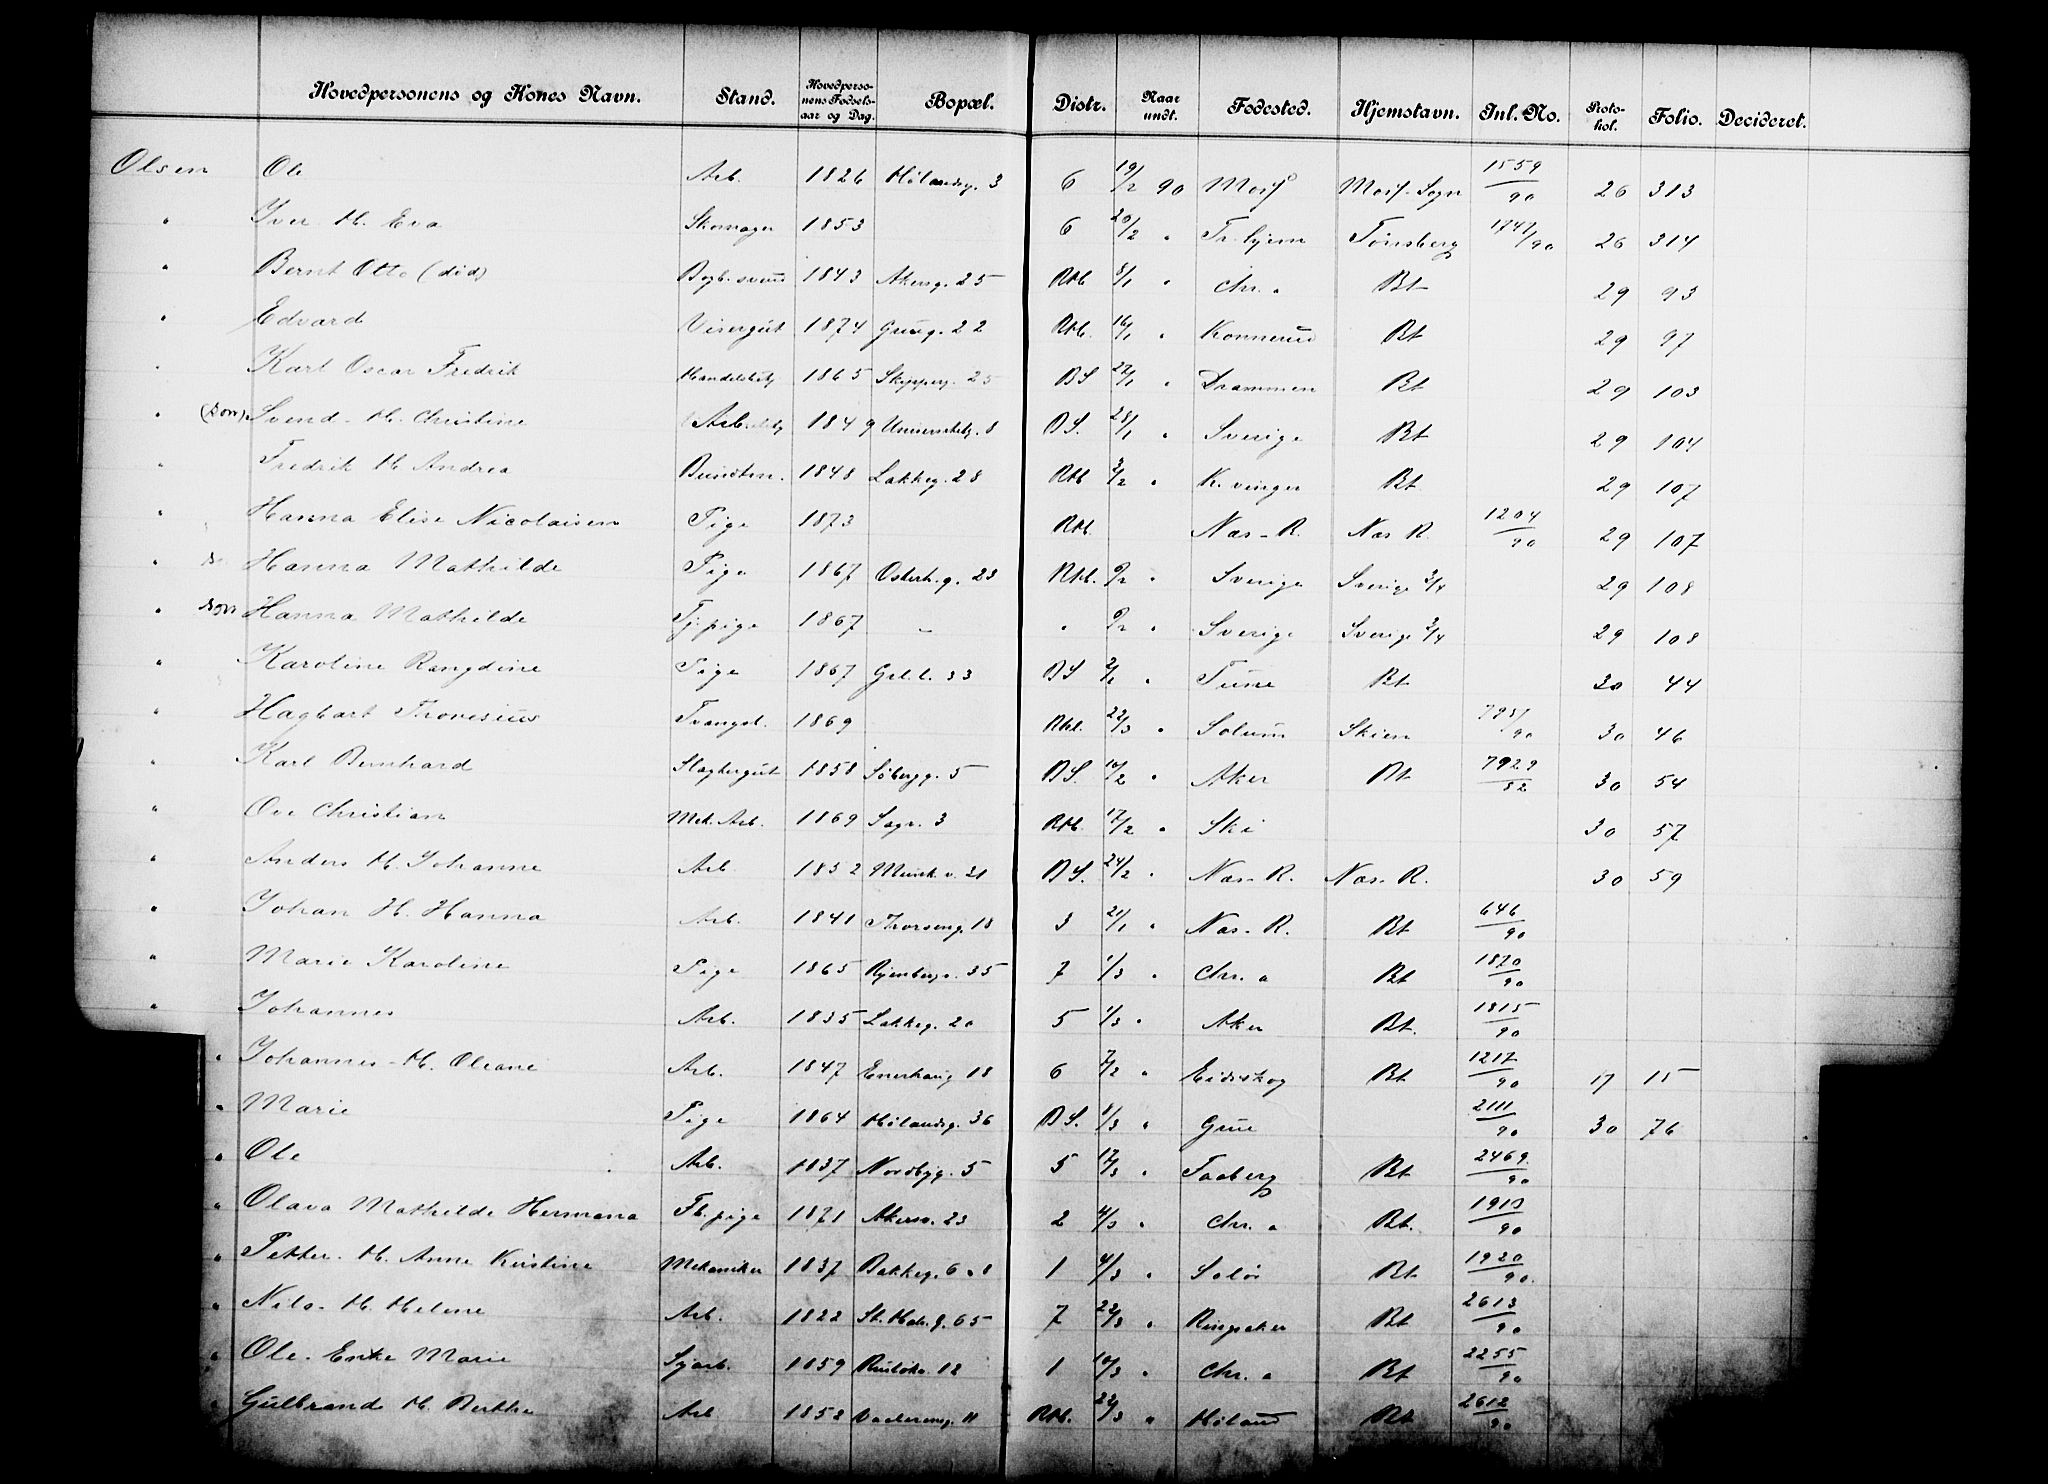 Hovedpersonens og Kones Navn. Stand. Hovedpersonens Fødselsaar og Dag. Bopæl. Distr. Naar undt. Fødested. Hjemstavn. Inl. No. Protokol. Folio. Decideret.
Olsen Ole Arb. 1826 Hølandsg. 3 6 19/2 90 Moss Moss. Sogn 1559/90 26 313
" Iver. H. Eva Skomager 1853 6 20/2 " Tr.hjem Tønsberg 1747/90 26 314
" Bernt Otto (død) Bogb. svend 1843 Akersg. 25 Rtb 8/1 " Chr. a Bt 29 93
" Edvard Visergut 1874 Grueg. 22 Rtb. 16/1 " Konnerud Bt 29 97
" Karl Oscar Fredrik Handelsbetj 1865 Skipperg. 25 BS 27/1 " Drammen Bt 29 103
" Svend. H. Christine Arb. 1849 Universitetsg. 8 BS. 28/1 " Sverige Bt 29 104
" Fredrik H. Andrea 1848 Lakkeg. 28 Rtb 3/2 " K.vinger Bt 29 107
" Hanna Elise Nicolaisen Pige 1873 Rtb. Næs - R. Næs R. 1204/90 29 107
" Hanna Mathilde Pige 1867 Osterh.g. 23 Rtb. 9/2 " Sverige Sverige 2/4 29 108
" Hanna Mathilde Tj. pige 1867 - " 9/2 " Sverige Sverige 2/4 29 108
" Karoline Rangdine Pige 1867 Grl.l. 33 BS 2/1 " Tune Bt 30 44
" Hagbart Thovesius Tvangsl. 1869 Rtb. 22/3 " Solum Skien 30 46
" Karl Bernhard Slagtergut 1858 Søbergg. 5 BS. 10/2 " Aker Bt 7929/82 30 54
" Ove Christian Mek. Arb. 1869 Sagv. 3 Rtb. 17/2 " Ski 30 57
" Anders H. Johanne Arb. 1852 Munk.v. 21 BS. 24/2 " Næs - R. Næs - R. 30 59
" Johan H. Hanna Arb. 1841 Thorseng. 18 3 21/1 " Næs - R. Bt 646/90
" Marie Karoline Pige 1865 35 7 1/3 " Chr. a Bt 1870/90
" Johannes Arb. 1835 Lakkeg. 20 5 1/3 " Aker Bt. 1815/90
" Johannes - H. Oleane Arb. 1847 Enerhaug 18 6 7/2 " Eidskog Bt 1217/90 17 15
" Marie Pige 1864 Hølandsg. 36 BS. 8/3 " Grue 2111/90 30 76
" Ole Arb. 1837 Nordbyg. 5 5 17/3 " Faaberg Bt 2469/90
" Olava Mathilde Hermana Fb. pige 1871 Akersv. 23 2 4/3 " Chr. a Bt. 1913/90
" Petter. H. Anne Kirstine Mekaniker 1837 Bakkeg. 6 a 8 1 4/3 " Solør Bt 1920/90
" Nils. H. Helene Arb. 1822 St. Halv.g. 65 7 22/3 " Ringsaker Bt 2613/90
" Ole. Enke Marie Sjøarb. 1859 Ruseløkv. 12 1 10/3 " Chr. a Bt 2255/90
" Gulbrand H. Berthe Arb 1852 Vaalereng. 11 Rtb. 22/3 " Høland Bt 2612/90